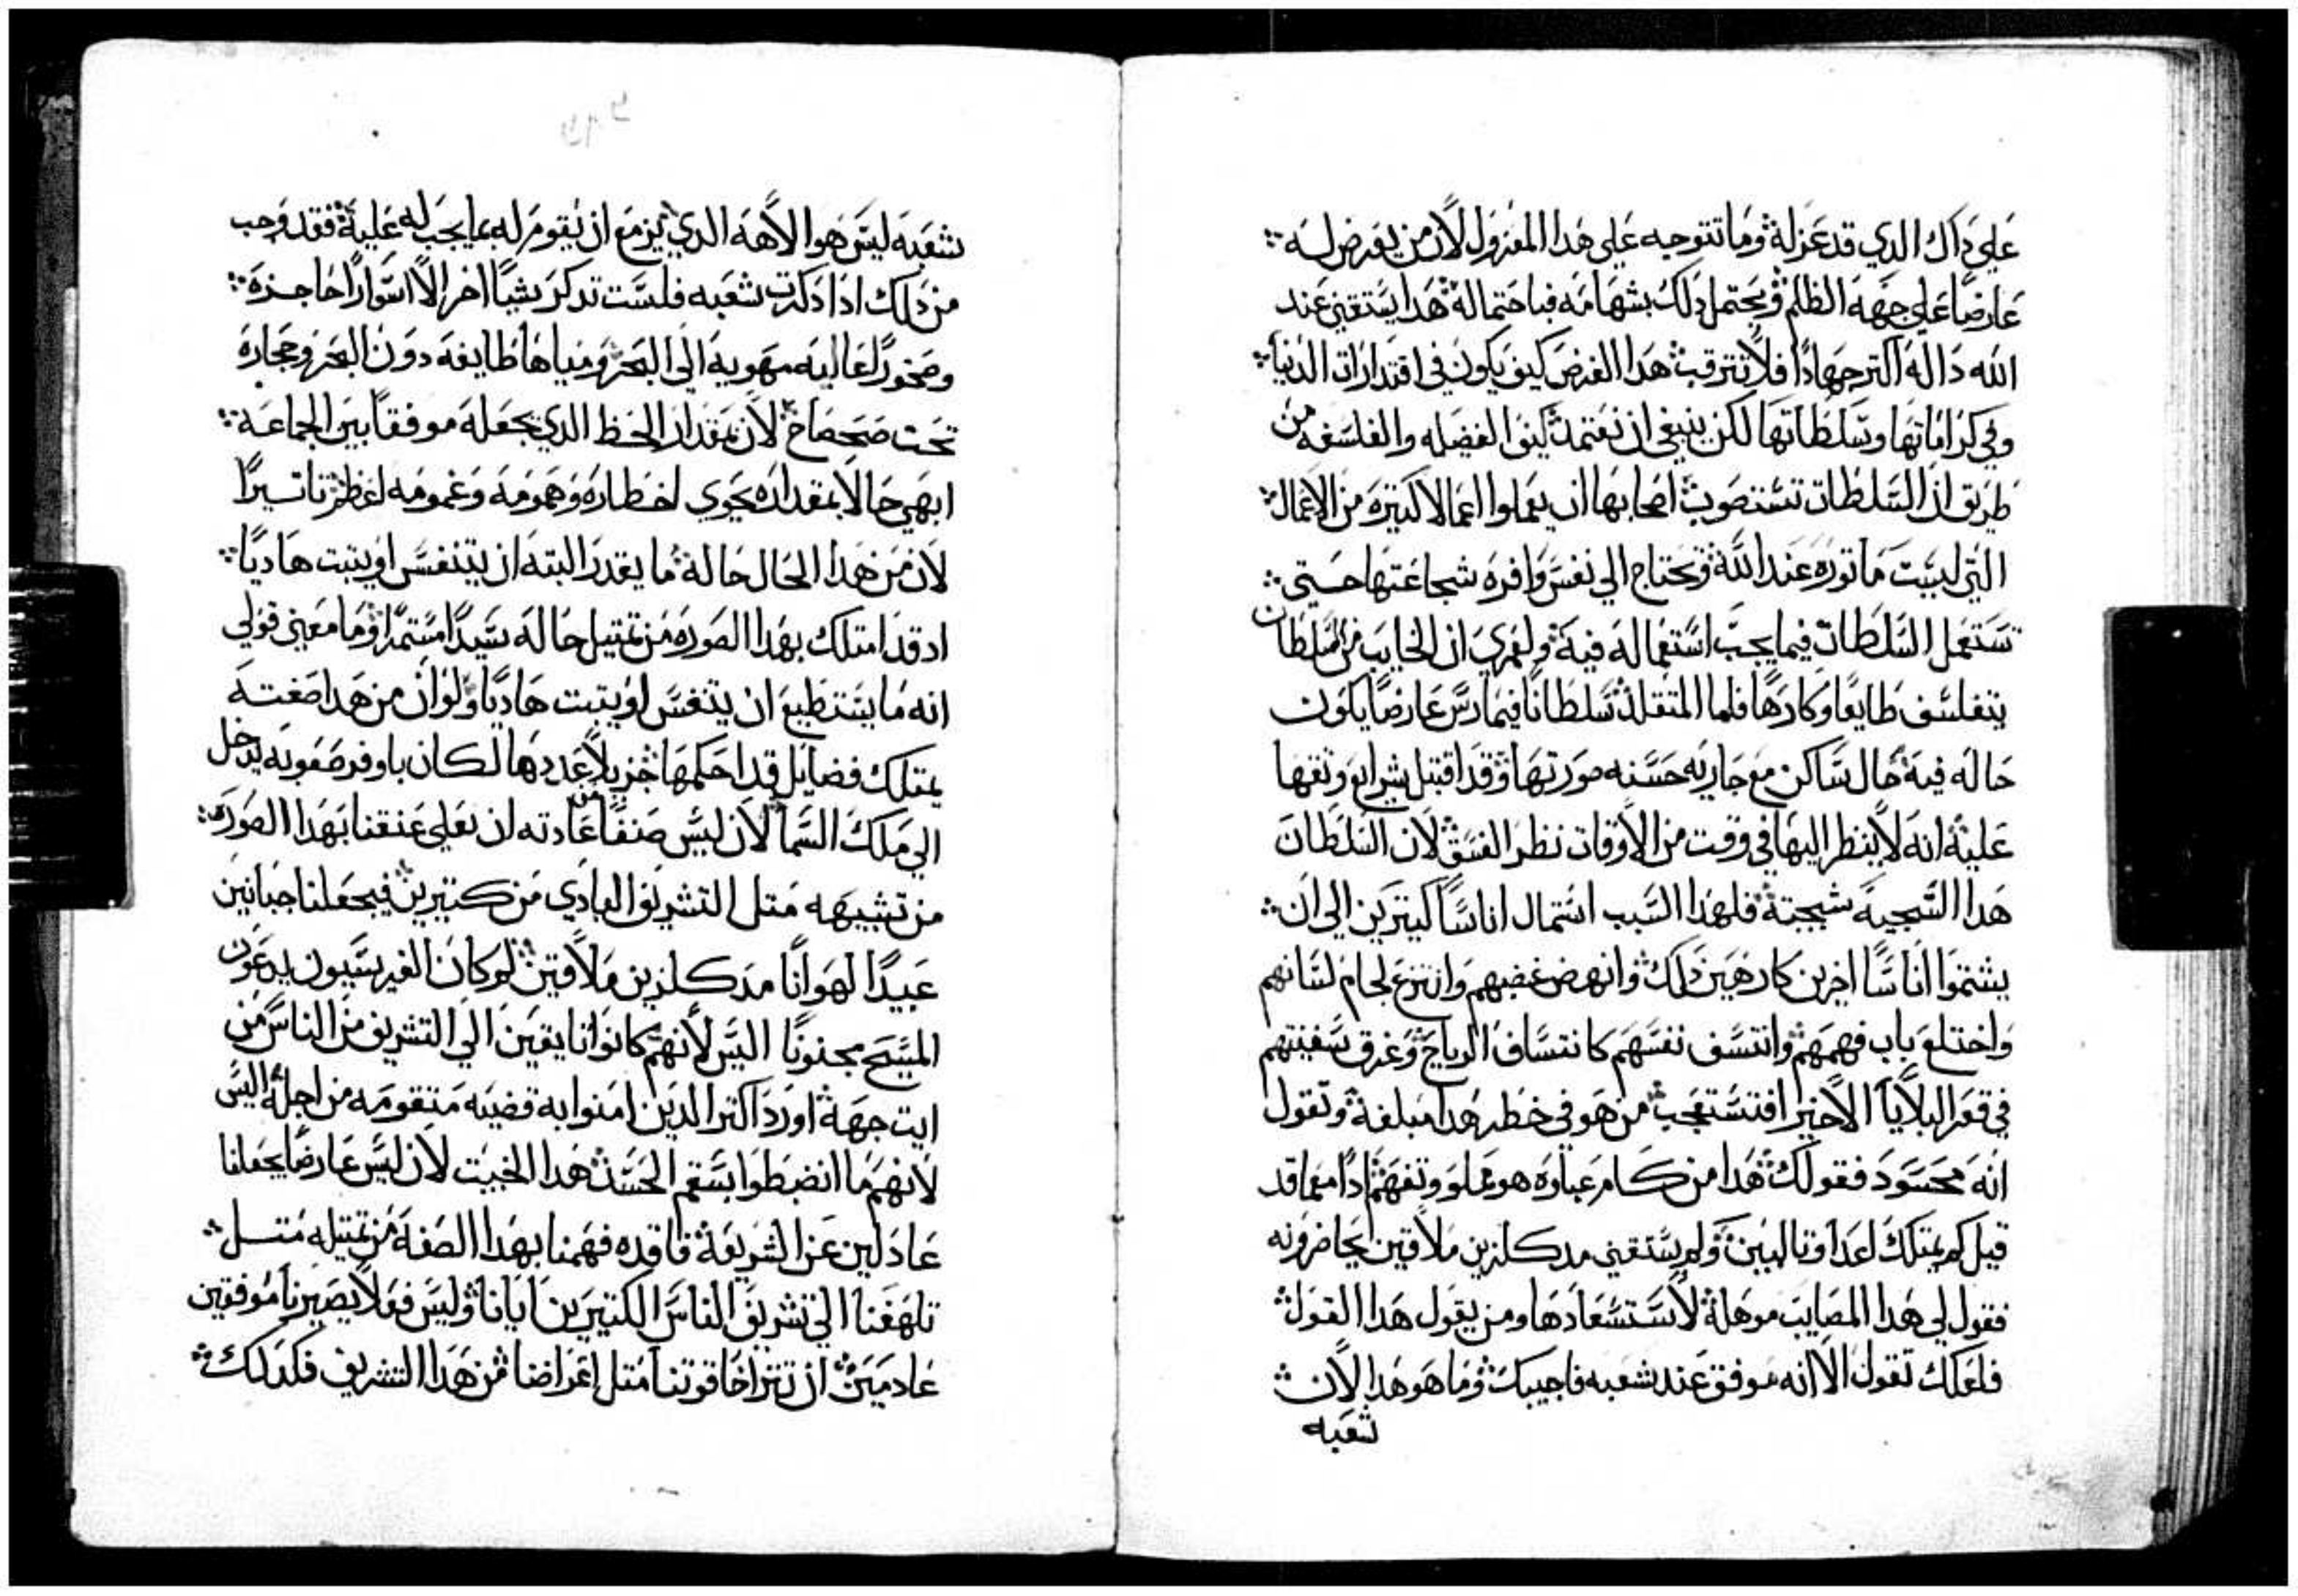 علي داك الدي قد عزله وما تتوجه علي هدا المعزول لان من يعرض له
عارضا علي جهة الظلم ويحتمل دلك بشهامه فباحتماله هدا يستقني عند
الله داله اكتر جهادا فلا تترقب هدا الغرض كيف يكون في اقتدارات الدنيا
وفي كراماتها وتسلطاتها لكن ينبغي ان نعتمد كنوا الفضيله والفلسفه من
طريق ان السلطات تستصوب اصحابها ان يعملوا اعمالا كتيرة من الاعمال
التي ليست ماتوره عند الله وتحتاج الي نفس وافره شجاعتها حتي
تستعمل السلطات فيما يجب استعماله فيه ولعمري ان الخايب من السلطان
يتفلسف طايعا وكارها فاما المتقلد سلطانا فيمارس عارضا يكون
حاله فيه حال ساكن مع جاريه حسنه صورتها وقد اقتبل شرايع وتقها
عليه انه لا ينظر اليها في وقت من الاوقات نظر الفسق لان السلطان
هدا السجية سجيته فلهدا السبب استمال اناسا كيترين الي ان
يشتموا اناسا اخرين كارهين دلك وانهض غضبهم وانتزع لجام لسانهم
واختلع باب فهمهم وانتسف نفسهم كانتساف الرياح وغرق سفينتهم
في قعر البلايا الاخير افتستعجب من هو في خطر هدا مبلغه وتقول
انه محسود فقولك هدا من كام عباوه هو مملو وتفهم ادا مما قد
قيل كم يمتلك اعدا وتالبين ولم يستقني مدكلزين ملاقين يحاضرونه
فقول لي هدا المصايب موهلة لاستسعادها ومن يقول هدا القول
فلعلك تقول الا انه موفق عند شعبه فاجيبك وما هو هدا لان
شعبه
شعبه ليس هوا الاهه الدي يزمع ان يقوم له بما يجب له عليه فقد وجب
من دلك ادا دكرت شعبه فلست تدكر شيا اخر الا اسوارا حاجزه
وصخورا عاليه مهويه الي البحر ومياها طايفه دون البحر وحجاره
تحت ضحضاح لان بمقدار الحظ الدي يجعله موفقا بين الجماعه
ابهي حالا بمقداره يحوي اخطاره وهمومه وغمومه اعظم تاتيرا
لان من هدا الحال حاله ما يقدر البته ان يتنفس او يتبت هاديا
اد قد امتلك بهدا الصوره من تمتيل حاله سيدا متمرا وما معني قولي
انه ما يستطيع ان يتنفس او يتبت هاديا ولو ان من هدا صفته
يمتلك فضايل قد احكمها جزيلا عددها لكان باوفر صعوبه يدخل
الي ملك السما لان ليس صنفا من عادته ان يعلي عنقنا بهدا الصوره
من تشبيهه متل التشريف البادي من كتيرين فيجعلنا جبانين
عبيدا لهوانا مدكلزين ملاقين لو كان الفريسيون يدعون
المسيح مجنونا اليس لانهم كانوا تايقين الي التشريف من الناس من
ايت جهة اورد اكتر الدين امنوا به قضيه متقومه من اجله اليس
لانهم ما انضبطوا بسقم الحسد هدا الخبيت لان ليس عارضا يجعلنا
عادلين عن الشريعة فاقده فهمنا بهدا الصفة من تمتيله متل
تلهفنا الي تشريف الناس الكتيرين ايانا وليس فعلا يصيرنا موفقين
عادمين ان تتراخا قوتنا متل اعراضنا من هدا التشريف فلدلك